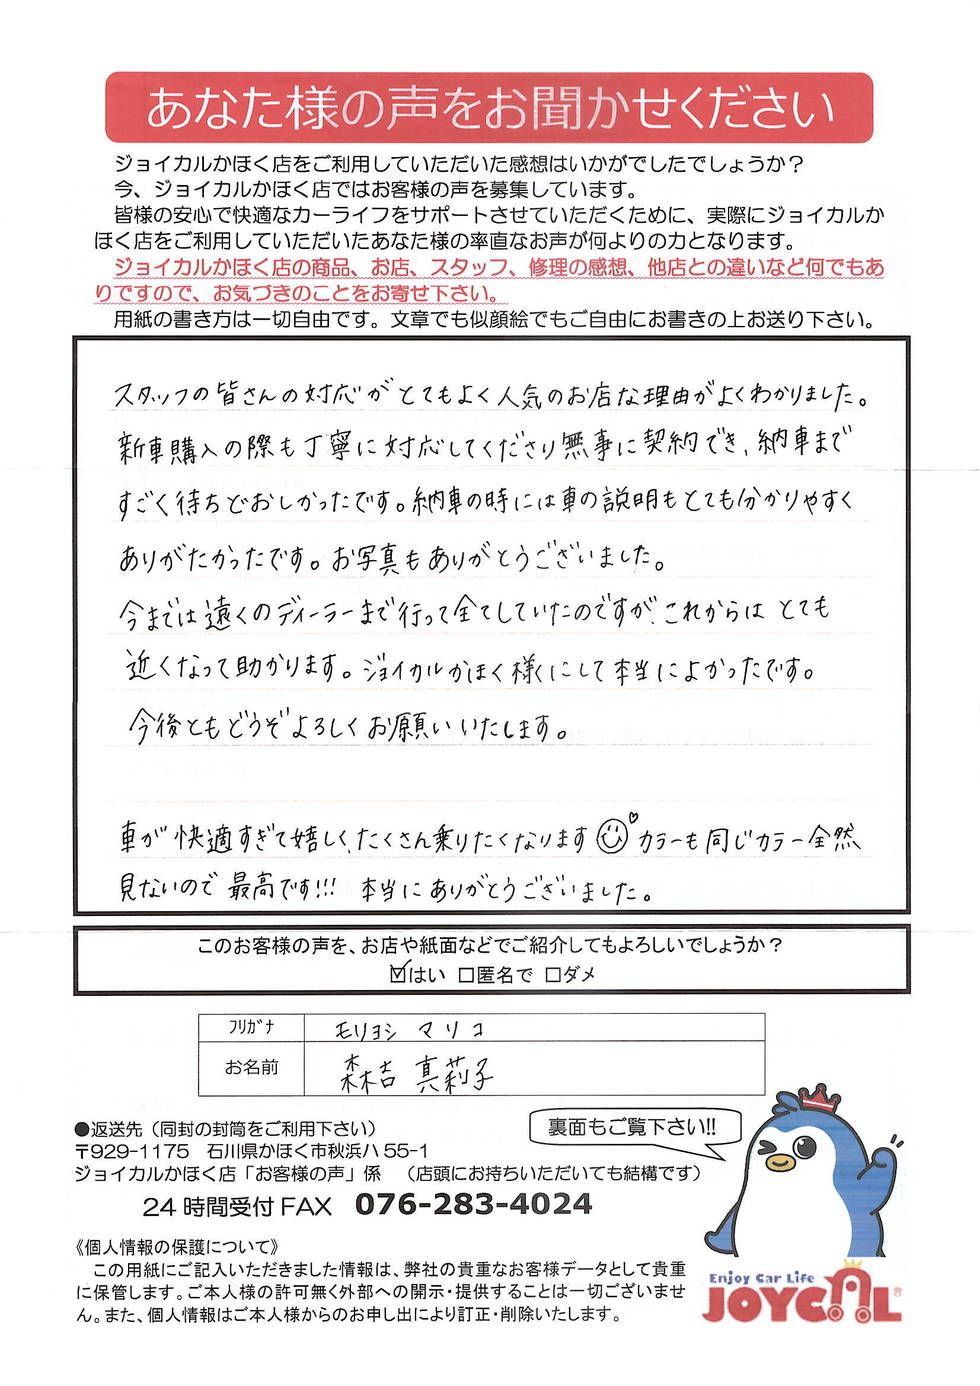 あなた様の声をお聞かせください
ジョイカルかほく店をご利用していただいた感想はいかがでしたでしょうか？
今、ジョイカルかほく店ではお客様の声を募集しています。
皆様の安心で快適なカーライフをサポートさせていただくために、実際にジョイカルか
ほく店をご利用していただいたあなた様の率直なお声が何よりの力となります。
ジョイカルかほく店の商品、お店、スタッフ、修理の感想、他店との違いなど何でもあ
りですので、お気づきのことをお寄せ下さい。
用紙の書き方は一切自由です。文章でも似顔絵でもご自由にお書きの上お送り下さい。
スタッフの皆さんの対応がとてもよく人気のお店な理由がよくわかりました。
新車購入の際も丁寧に対応してくださり無事に契約でき、納車まで
すごく待ちどおしかったです。納車の時には車の説明もとても分かりやすく
ありがたかったです。お写真もありがとうございました。
今までは遠くのディーラーまで行って全てしていたのですが、これからは とても
近くなって助かります。ジョイカルかほく様にして本当によかったです。
今後ともどうぞよろしくお願いいたします。
車が快適すぎて嬉しく、たくさん乗りたくなります カラーも同じカラー全然
見ないので 最高です!!! 本当にありがとうございました。
このお客様の声を、お店や紙面などでご紹介してもよろしいでしょうか？
☑はい □匿名で □ダメ
フリガナ モリヨシ マリコ
お名前 森吉 真莉子
●返送先（同封の封筒をご利用下さい）
裏面もご覧下さい!!
〒929-1175 石川県かほく市秋浜ハ55-1
ジョイカルかほく店「お客様の声」係 （店頭にお持ちいただいても結構です）
24時間受付FAX 076-283-4024
《個人情報の保護について》
この用紙にご記入いただきました情報は、弊社の貴重なお客様データとして貴重
に保管します。ご本人様の許可無く外部への開示・提供することは一切ございませ
ん。また、個人情報はご本人様からのお申し出により訂正・削除いたします。
Enjoy Car Life
JOYCAL®